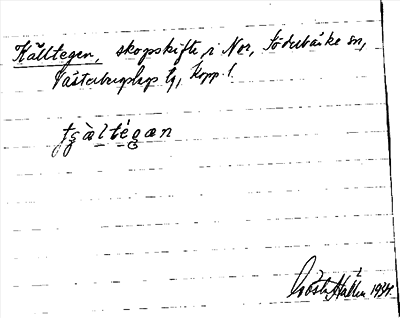 Källtegen, skogsskifte i Nor, Söderbärke sn,
Västerbergslags tg, Kopp. l.
tʂàltégæn
Gösta Hallin 1934.